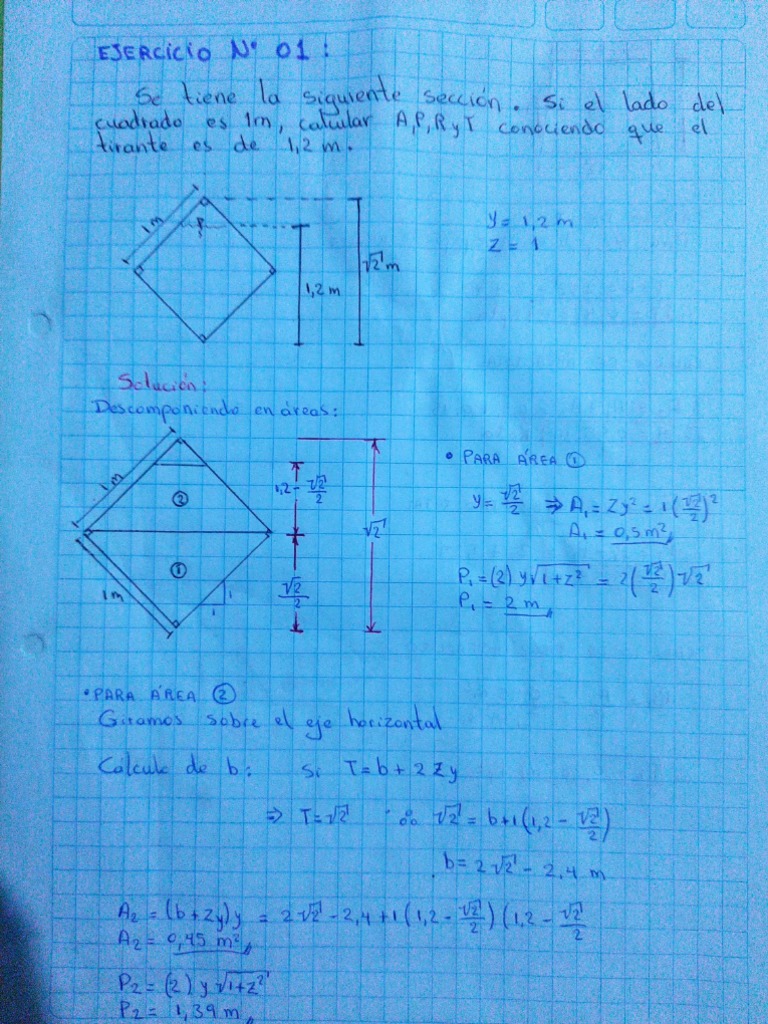 EJERCICIO Nº 01:
Se tiene la siguiente sección. Si el lado del
cuadrado es 1m, calcular A,P,R y T conociendo que el
tirante es de 1,2 m.
1m
y = 1,2 m
z = 1
√2 m
1,2 m
Solución:
Descomponiendo en áreas:
1m
②
1,2 - √2/2
√2
• PARA ÁREA ①
y = √2/2 ⇒ A₁ = Zy² = 1(√2/2)²
A₁ = 0,5 m²
①
1m
1
1
√2/2
P₁ = (2) y√1+z² = 2(√2/2)√2
P₁ = 2 m
• PARA ÁREA ②
Giramos sobre el eje horizontal
Cálculo de b: Si T = b + 2 Z y
⇒ T = √2 ∴ √2 = b+1(1,2 - √2/2)
b = 2√2 - 2,4 m
A₂ = (b + Zy)y = 2√2 - 2,4 + 1(1,2 - √2/2)(1,2 - √2/2
A₂ = 0,45 m²
P₂ = (2) y √1+z²
P₂ = 1,39 m